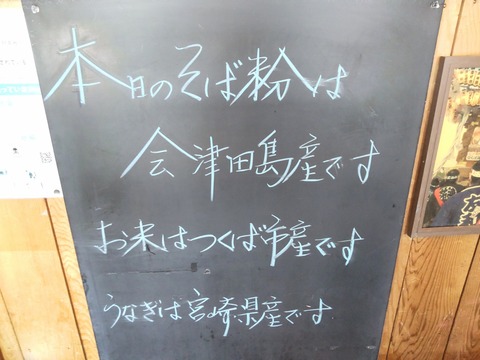 本日のそば粉は
会津田島産です
お米はつくば市産です
うなぎは宮崎県産です